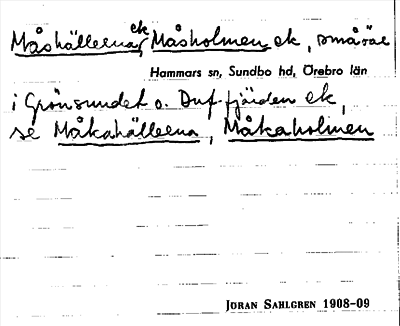 Måshällerna ek, Måsholmen ek, småöar
Hammars sn, Sundbo hd, Örebro län
i Grönsundet o. Duf-fjärden ek,
se Måkahällerna, Måkaholmen
JÖRAN SAHLGREN 1908-09